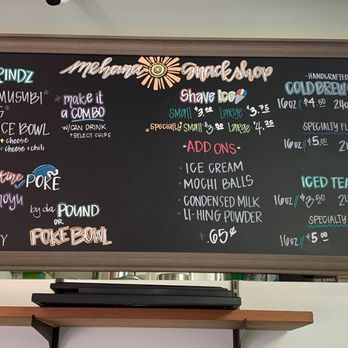 mehana snack shop
GRINDZ
MUSUBI
make it
a COMBO
W/CAN DRINK
+ SELECT CHIPS
ICE BOWL
+ cheese
+ cheese + chili
POKE
by da POUND
OR
POKE BOWL
Shave Ice
small $3.00 Large $3.75
specialty small $3.50 Large $4.25
ADD ONS
ICE CREAM
MOCHI BALLS
CONDENSED MILK
LI-HING POWDER
+.65¢
HANDCRAFTED
COLD BREW
16oz // $4.50 24o
SPECIALTY FL
16oz // $5.00 24
ICED TEA
16oz // $3.50 24
SPECIALTY
16oz // $5.00